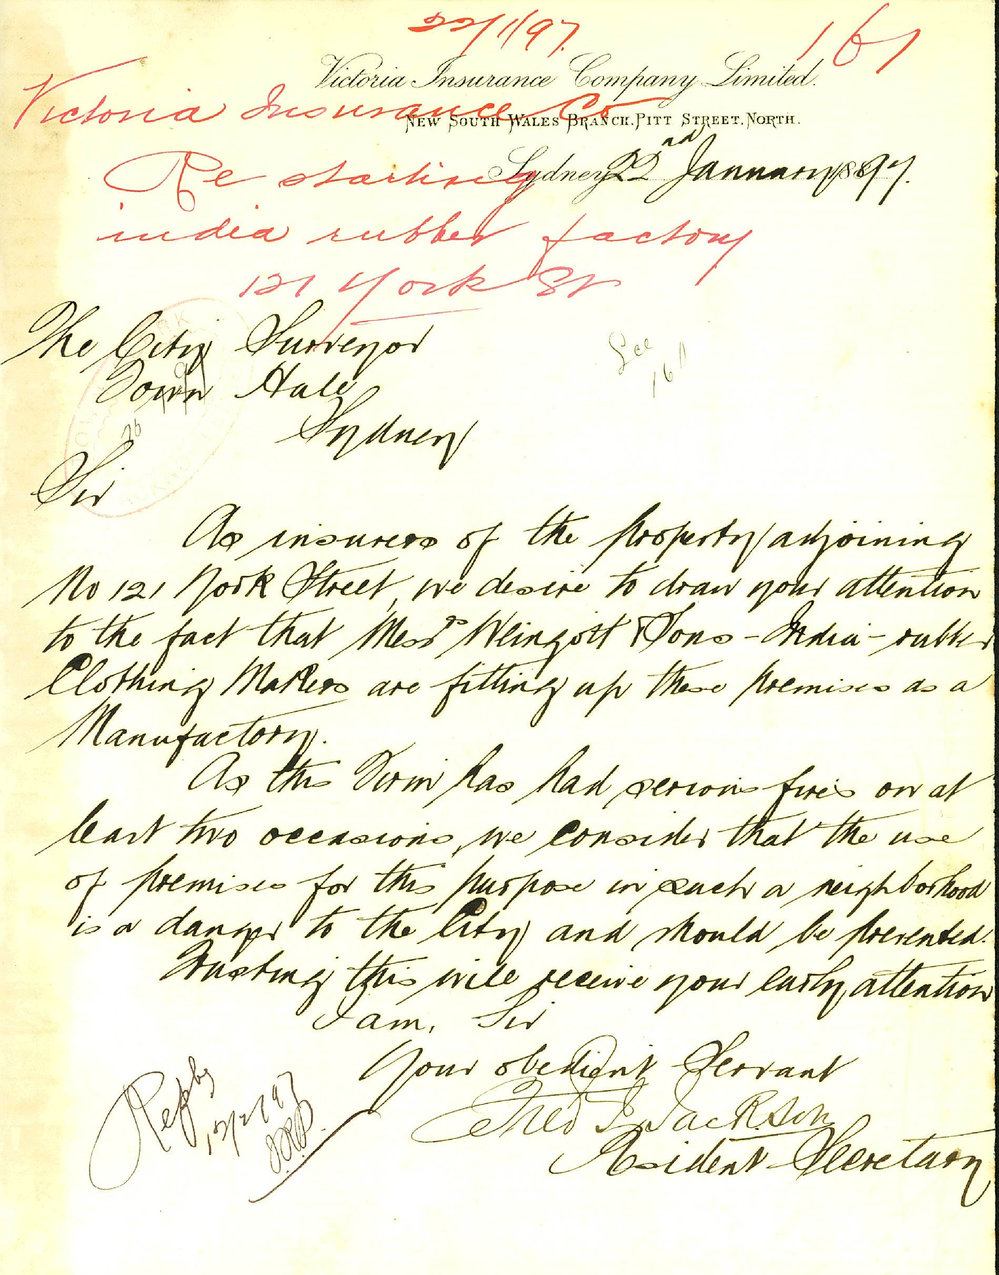 22/1/97.
161
Victoria Insurance Company Limited.
Victoria Insurance Co
New South Wales Branch. Pitt Street. North.
Sydney 22nd January 1897.
Re starting
india rubber factory
121 York St
The City Surveyor
Town Hall
Sydney
See
161
26
Sir
As insurers of the property adjoining
No 121 York Street, we desire to draw your attention
to the fact that Messrs Weingott & Sons - India-rubber
Clothing Makers are fitting up these premises as a
Manufactory.
As this Firm has had serious fires on at
least two occasions, we consider that the use
of premises for this purpose in such a neighborhood
is a danger to the City and should be prevented.
Trusting this will receive your early attention
I am, Sir
Your obedient Servant
Fred J. Jackson
Resident Secretary
Reply
12/2/97